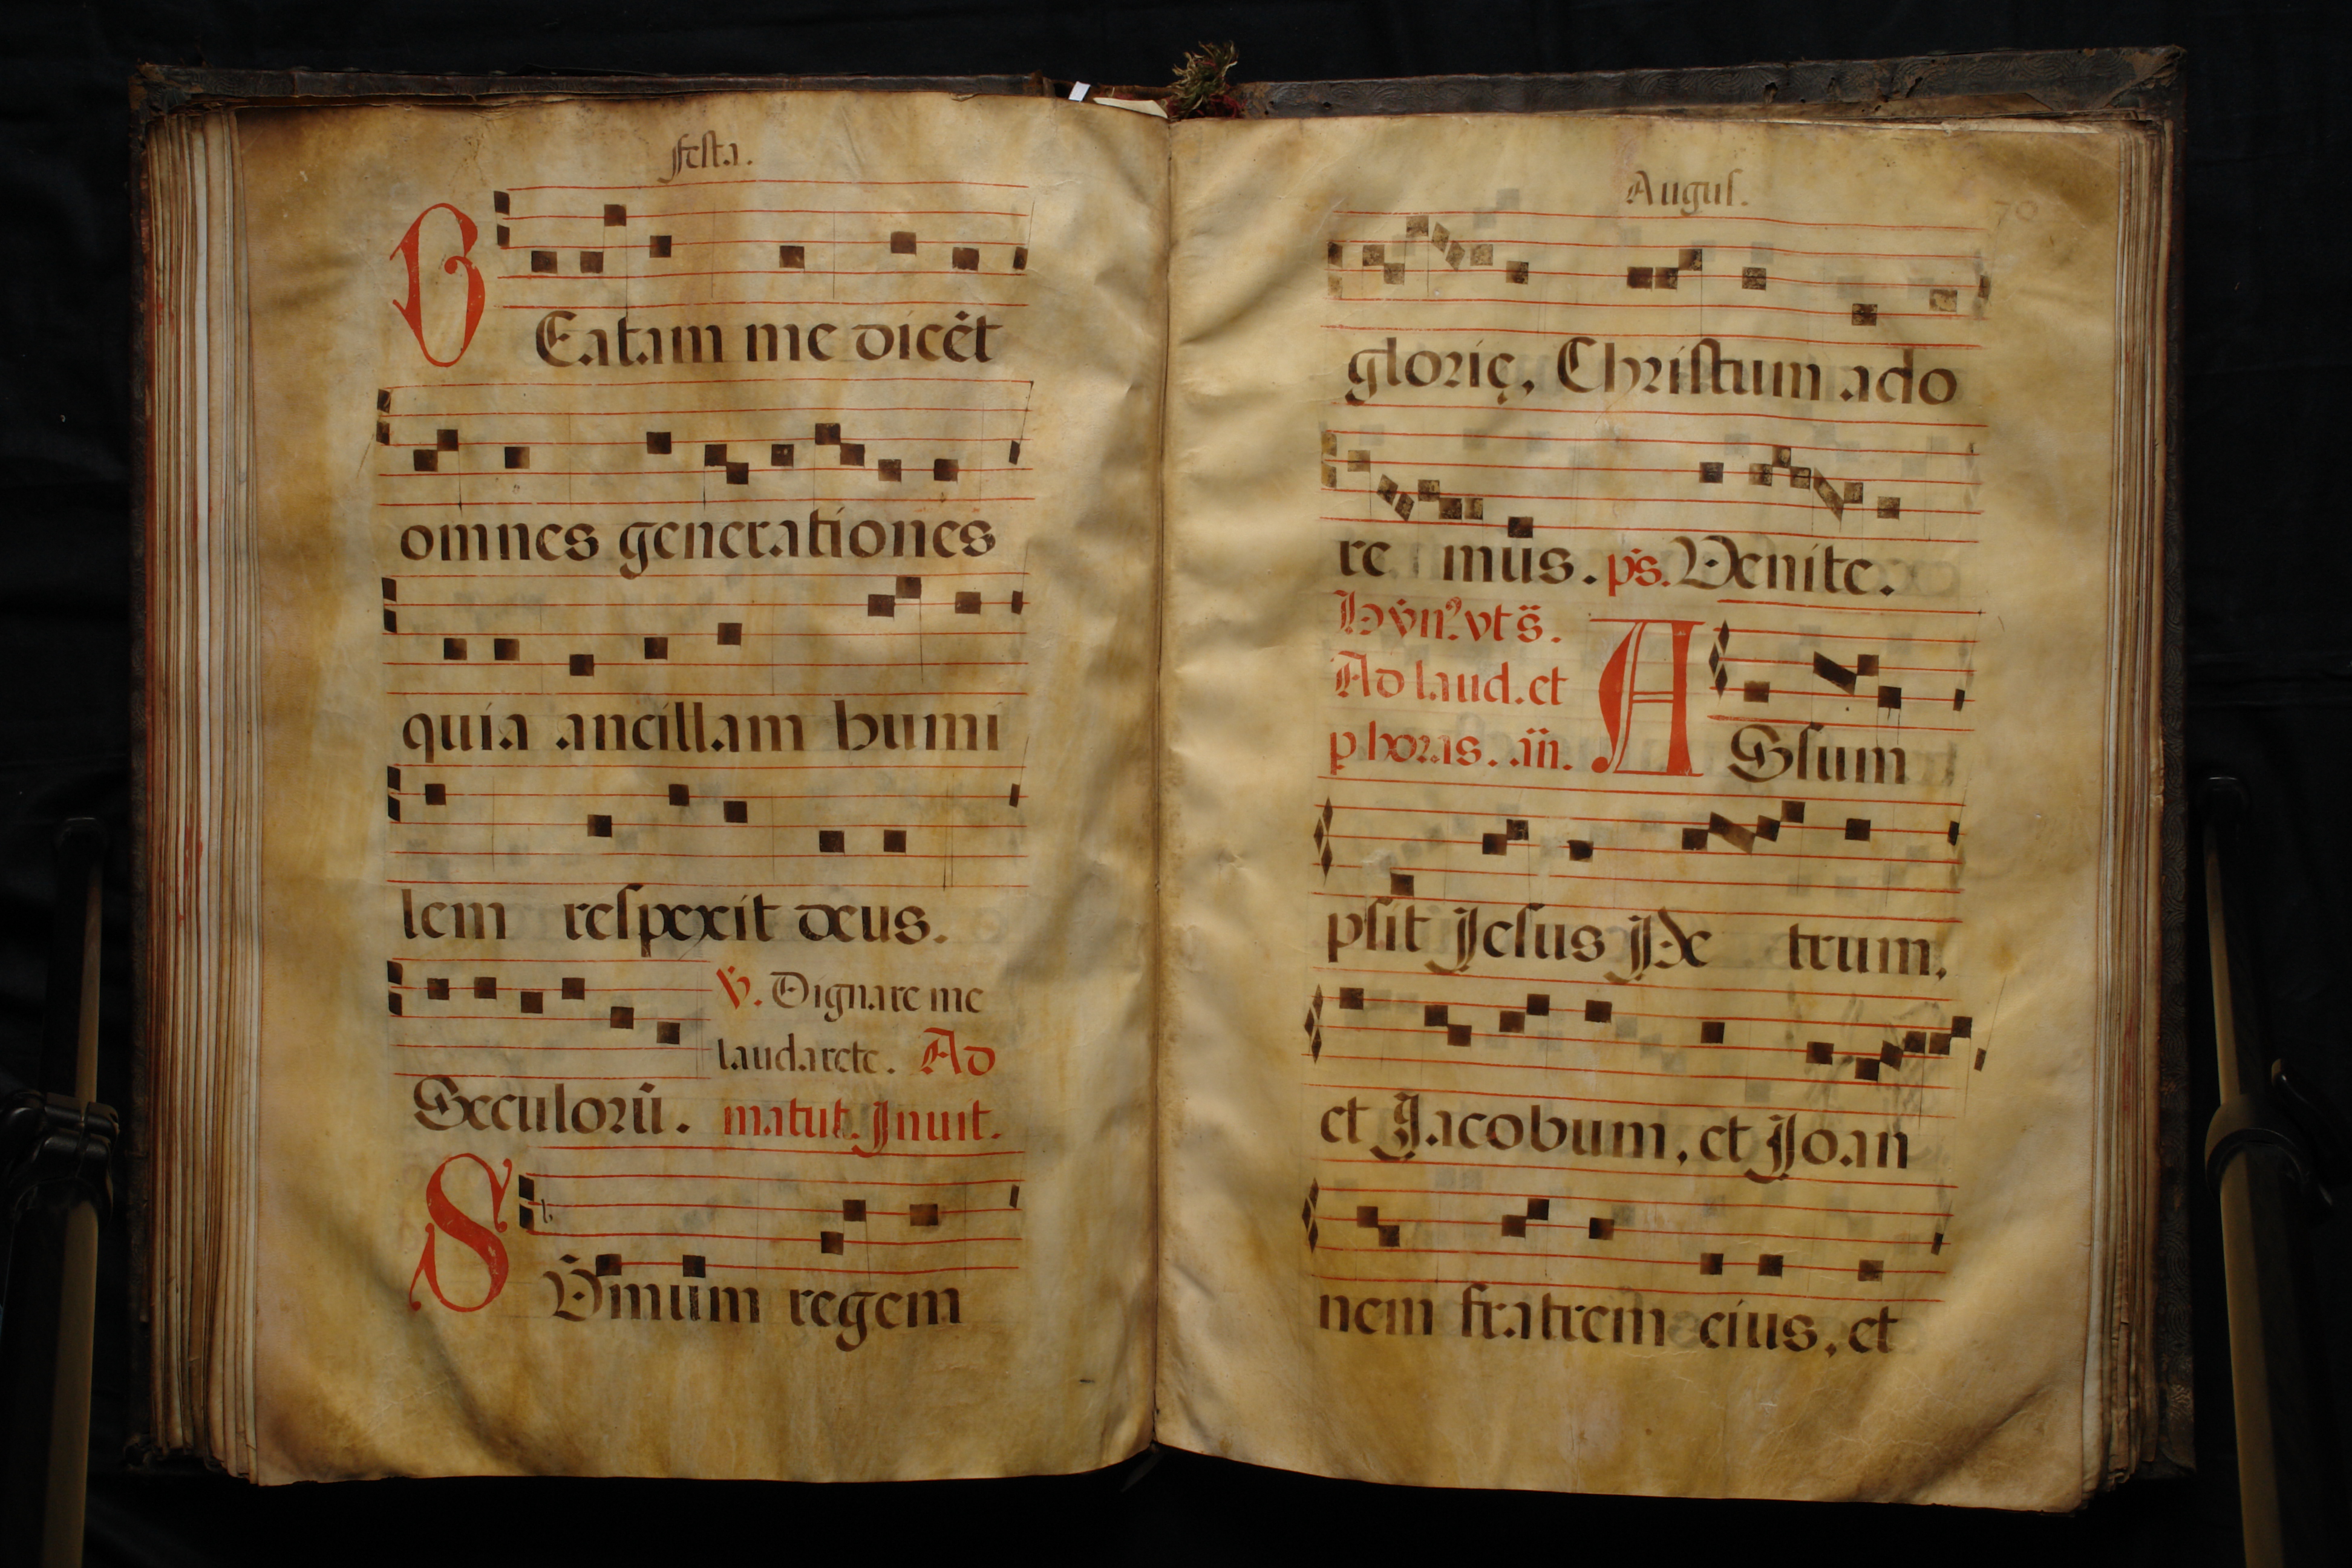 festa.
BEatam me dicēt
omnes generationes
quia ancillam humi
lem respexit deus.
℣. Dignare me
laudarete. Ad
Sęculorū. matut. Inuit.
SVmmūm regem
Augus. 70
glorię, Christum ado
re mus. ps. Venite.
Hym. vt s.
Ad laud. et
p horas. an. ASsum
psit Jesus Pe trum,
et Jacobum, et Joan
nem fratrem eius, et